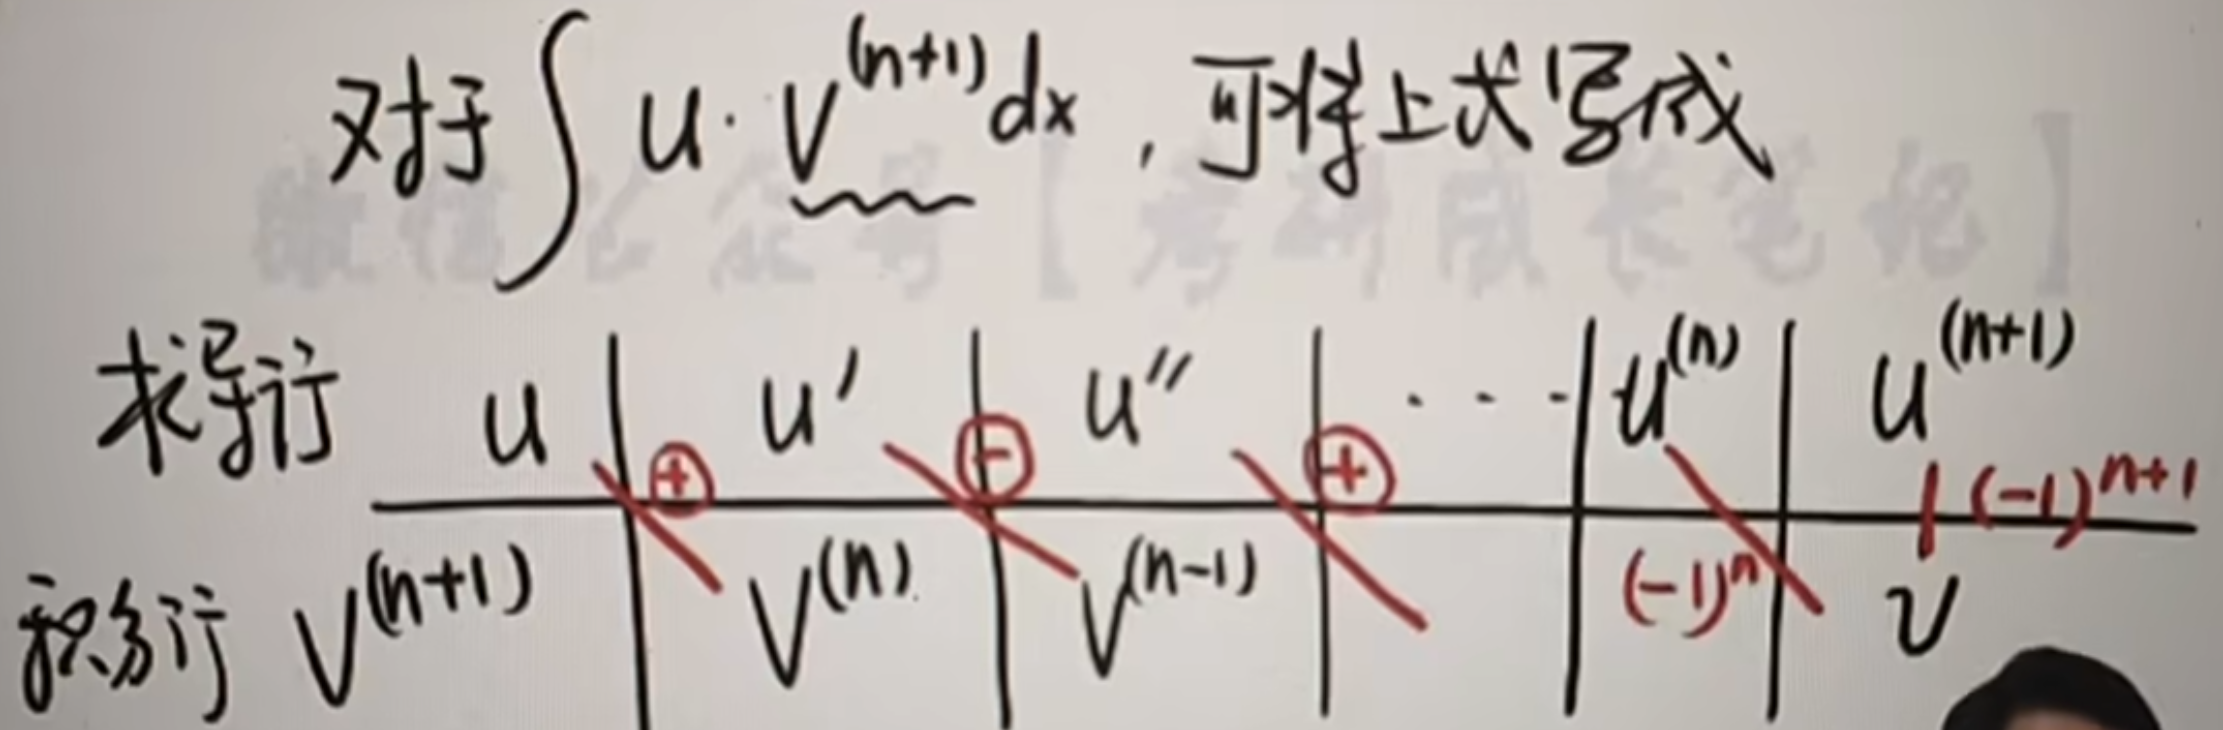 对于∫u·v^(n+1)dx，可将上式写成
微信公众号【考研成长笔记】
求导行 u | u′ | u″ | ··· | u^(n) | u^(n+1)
⊕ ⊖ ⊕ (-1)^n (-1)^{n+1}
积分行 v^(n+1) | v^(n) | v^(n-1) | | | v